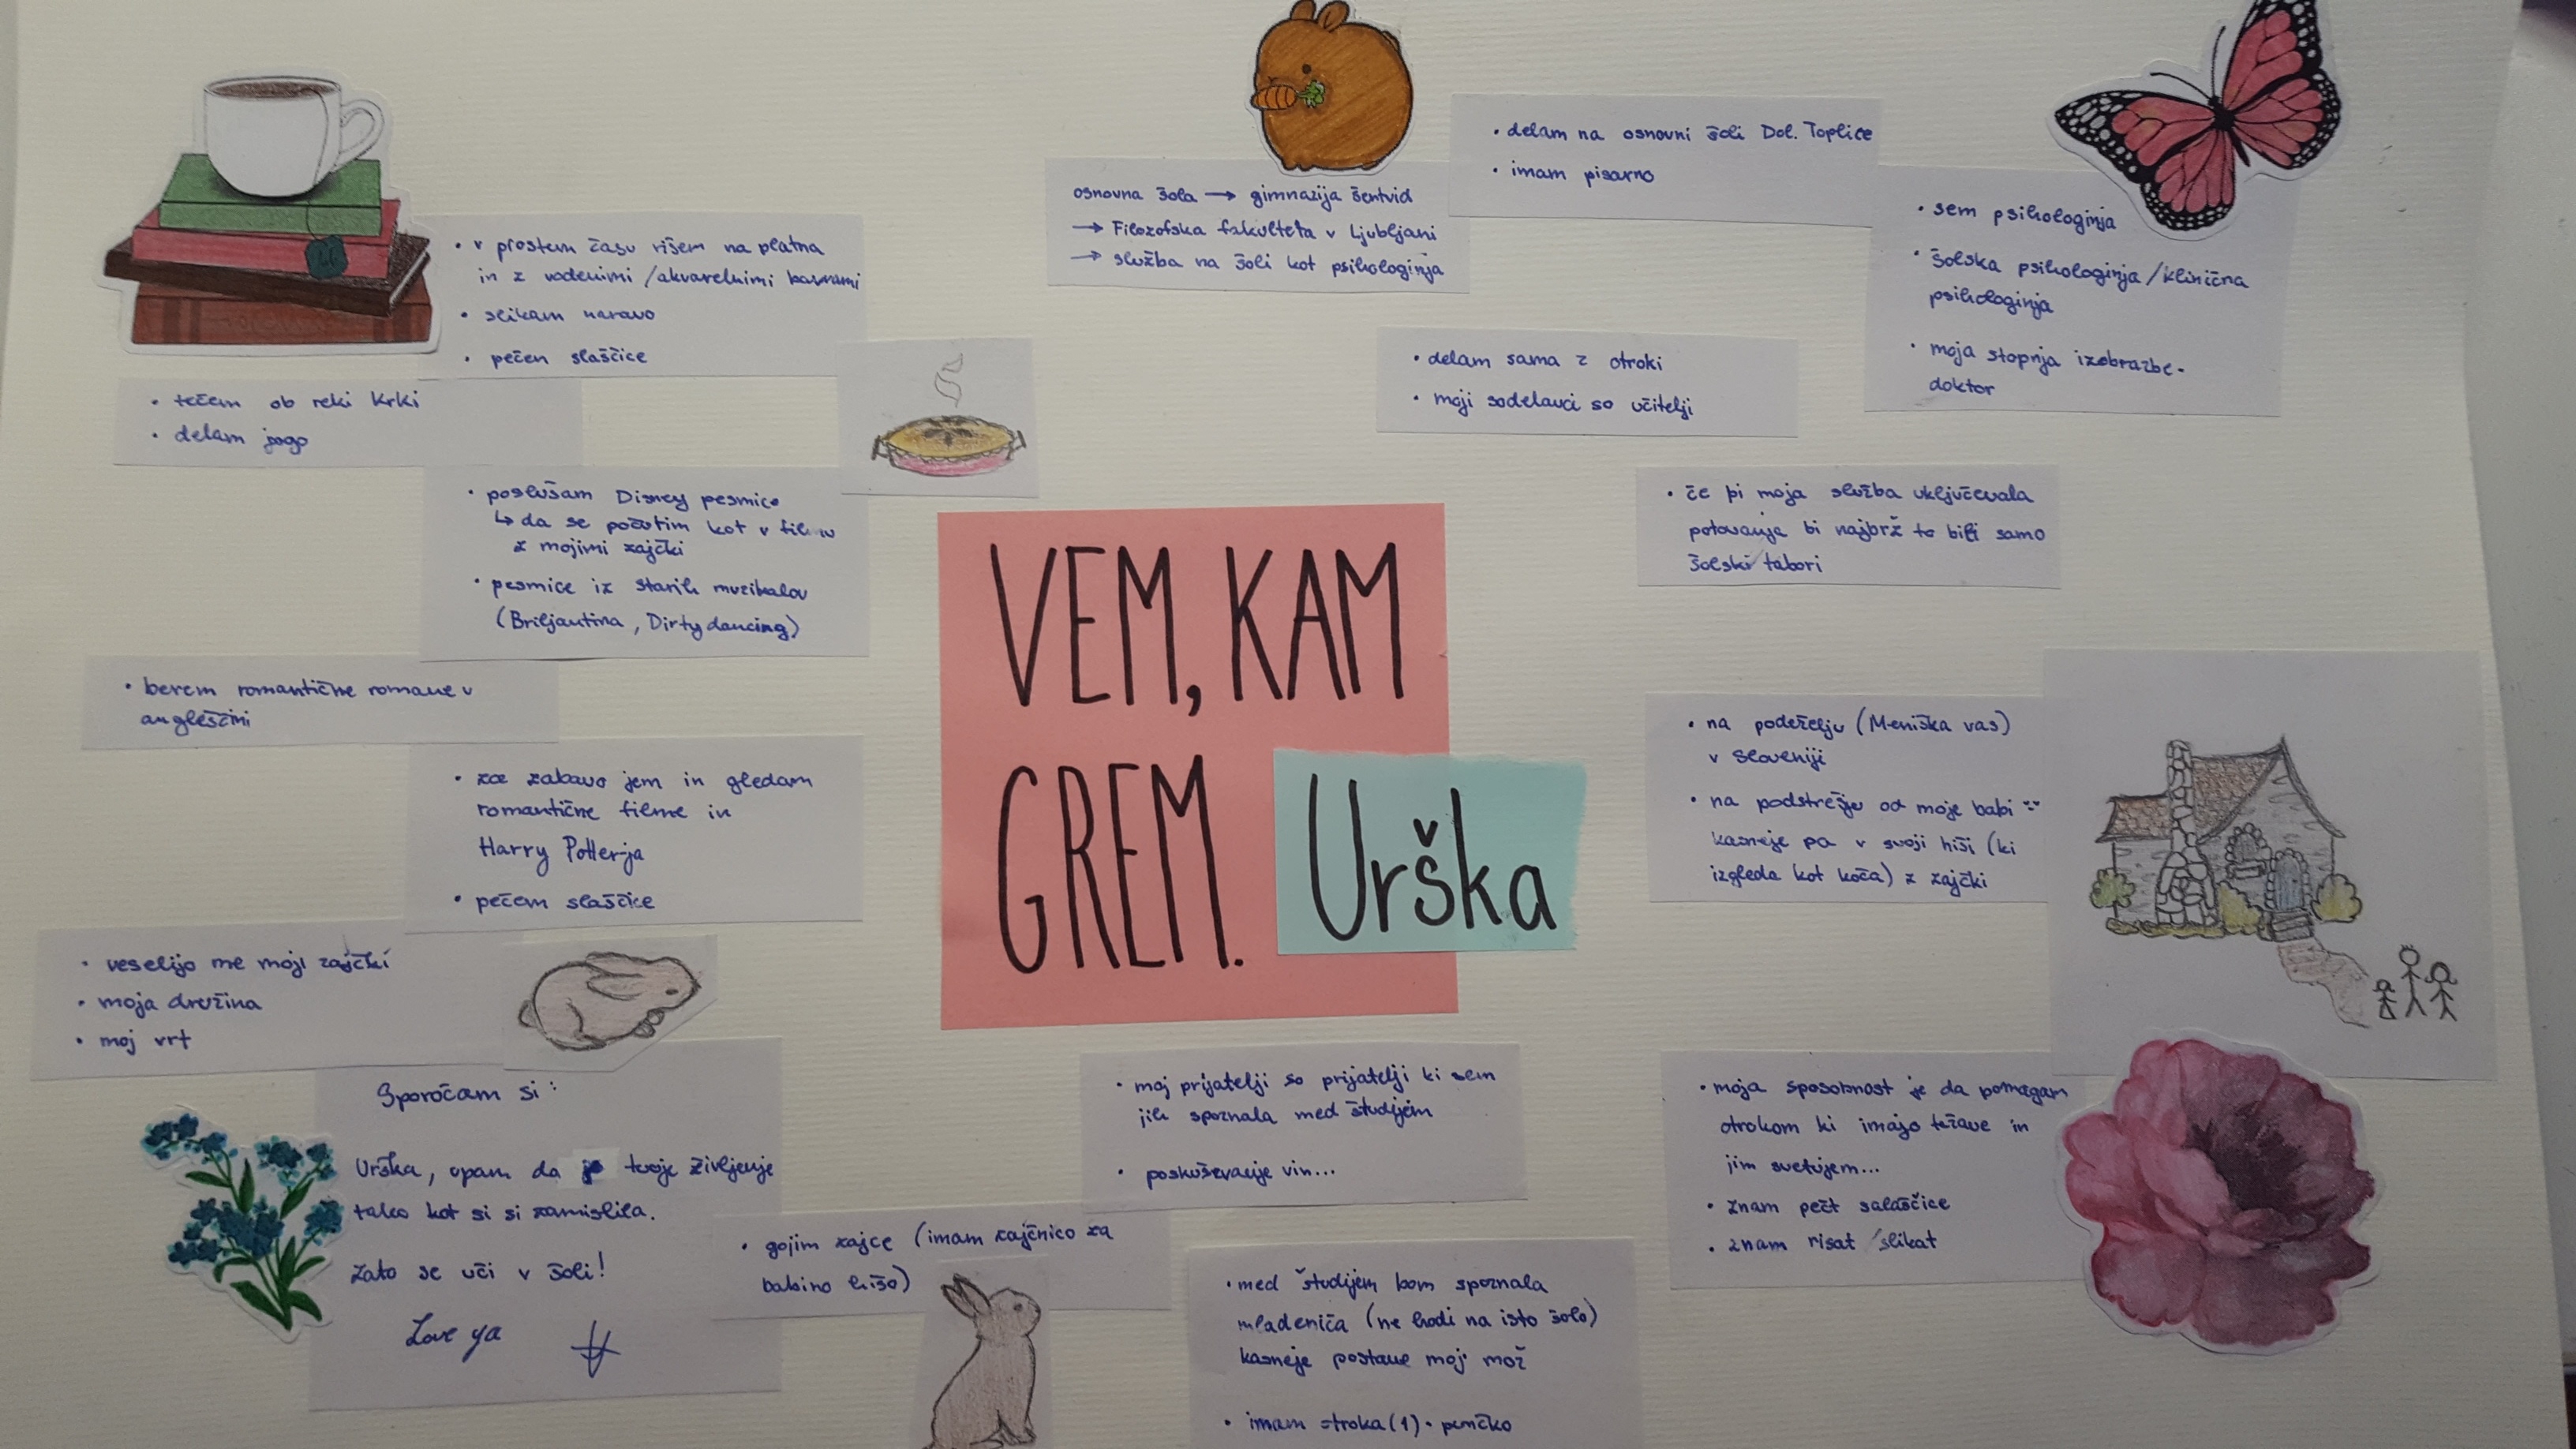 VEM, KAM
GREM.
Urška
• v prostem času rišem na platna
in z vodenimi /akvarelnimi barvami
• slikam naravo
• pečen slaščice
• tečem ob reki Krki
• delam jogo
• poslušam Disney pesmice
↳ da se počutim kot v filmu
z mojimi zajčki
• pesmice iz starih muzikalov
(Briljantina, Dirty dancing)
• berem romantične romane v
angleščini
• za zabavo jem in gledam
romantične filme in
Harry Potterja
• pečem slaščice
• veselijo me moji zajčki
• moja družina
• moj vrt
Sporočam si:
Urška, upam da je tvoje življenje
tako kot si si zamislila.
Zato se uči v šoli!
Love ya
osnovna šola → gimnazija šentvid
→ Filozofska fakulteta v Ljubljani
→ služba na šoli kot psihologinja
• delam na osnovni šoli Dol. Toplice
• imam pisarno
• sem psihologinja
• šolska psihologinja /klinična
psihologinja
• moja stopnja izobrazbe -
doktor
• delam sama z otroki
• moji sodelavci so učitelji
• če bi moja služba vključevala
potovanja bi najbrž to bili samo
šolski tabori
• na podeželju (Meniška vas)
v Sloveniji
• na podstrešju od moje babi
kasneje pa v svoji hiši (ki
izgleda kot koča) z zajčki
• moja sposobnost je da pomagam
otrokom ki imajo težave in
jim svetujem...
• znam pečt salaščice
• znam risat /slikat
• moj prijatelji so prijatelji ki sem
jih spoznala med študijem
• poskuševanje vin...
• gojim zajce (imam zajčnico za
babino hišo)
• med študijem bom spoznala
mladeniča (ne hodi na isto šolo)
kasneje postane moj mož
• imam otroka (1) • punčko